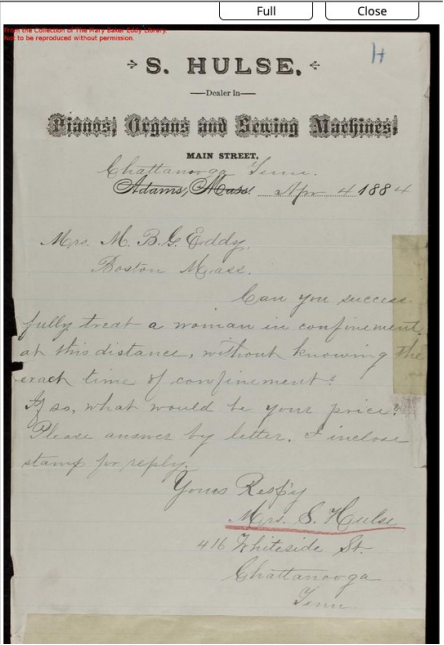 Full
Close
From the Collection of The Mary Baker Eddy Library.
Not to be reproduced without permission.
H
S. HULSE,
Dealer in
Pianos, Organs and Sewing Machines,
MAIN STREET,
Chattanooga Tenn.
Adams, Mass. Apr 4 1884
Mrs. M. B. G. Eddy.
Boston Mass.
Can you success
fully treat a woman in confinement,
at this distance, without knowing the
exact time of confinement?
If so, what would be your price?
Please answer by letter. I inclose
stamp for reply.
Yours Respy
Mrs. S. Hulse
416 Whiteside St.
Chattanooga
Tenn